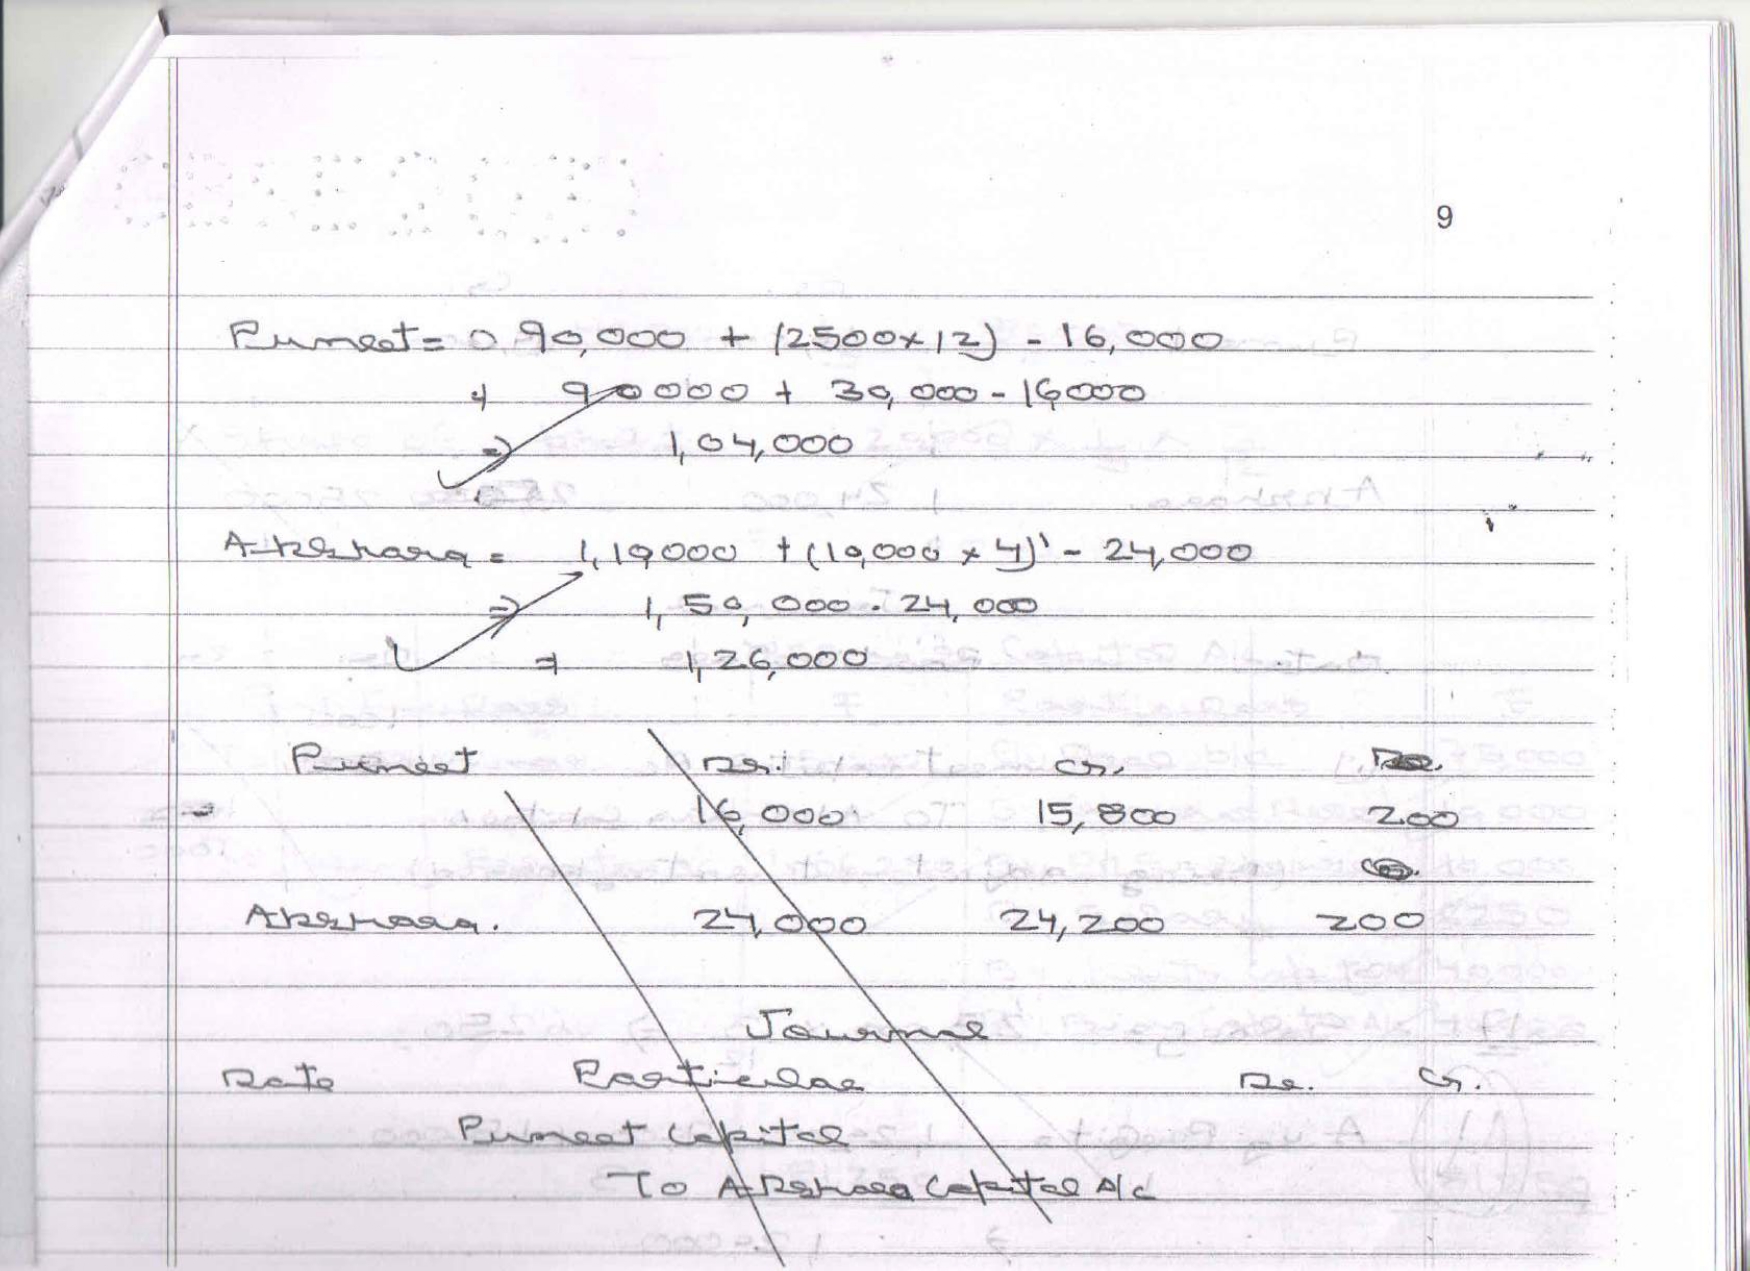 9
Puneet = 90,000 + (2500x12) - 16,000
⇒ 90000 + 30,000 - 16000
⇒ 1,04,000
Akshara = 1,10,000 + (10,000 x 4) - 24,000
⇒ 1,50,000 - 24,000
⇒ 1,26,000
Puneet Dr. Cr. Dr.
16,000 15,800 200
Cr.
Akshara. 24,000 24,200 200
Journal
Date Particular Dr. Cr.
Puneet Capital
To Akshara Capital A/c